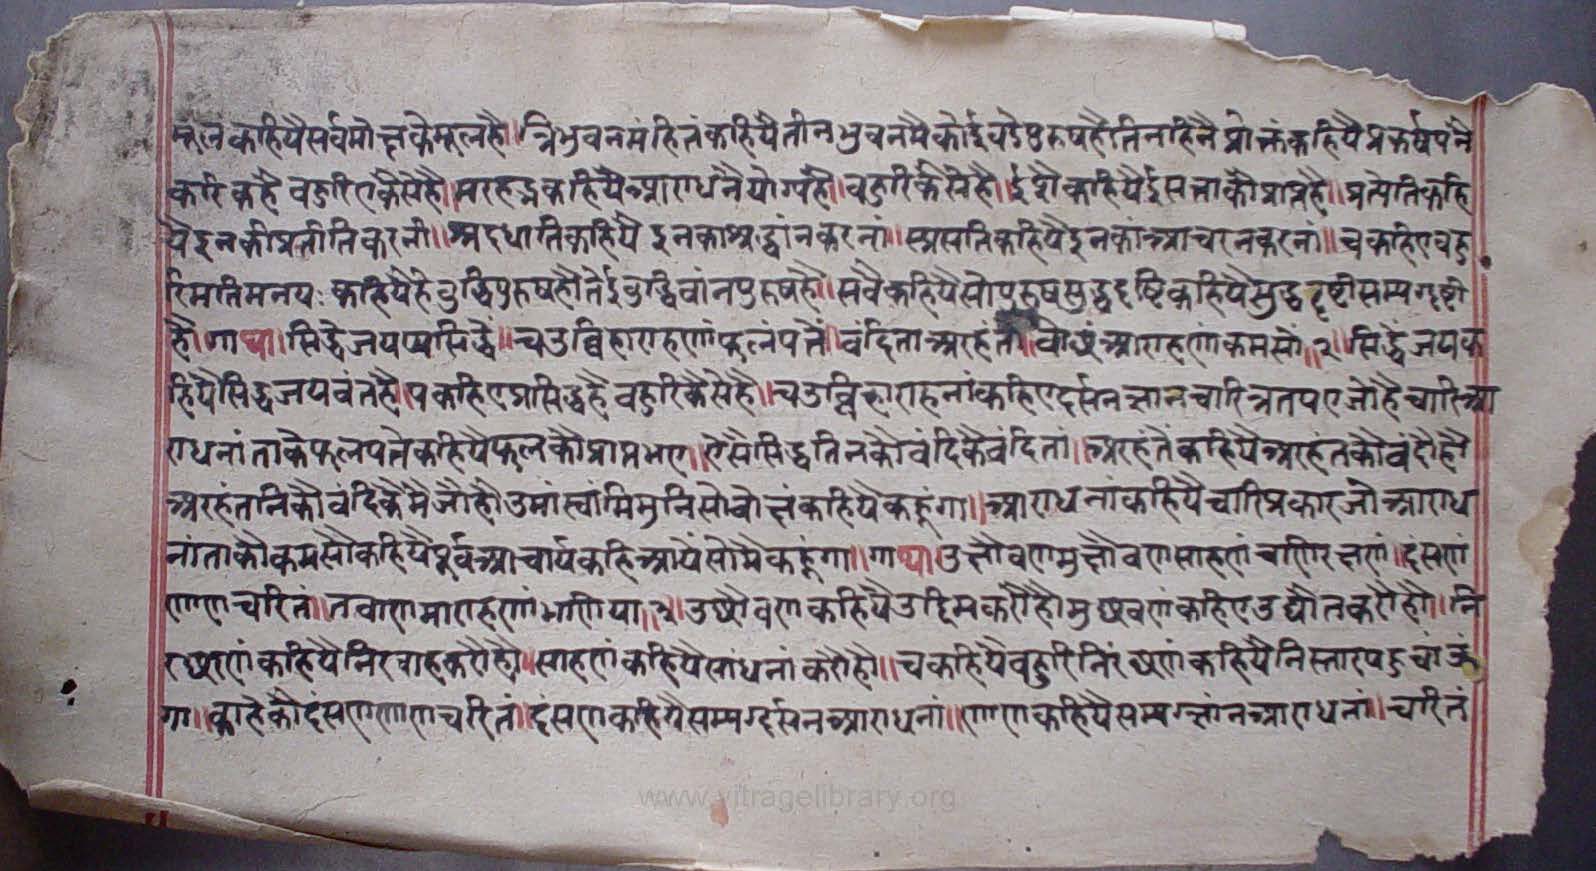 मूल कहियै सर्व मोक्ष के मूल है॥ त्रिभुवन महितं कहियै तीन भुवन मै कोई वडे पुरुष है तिनहिनै प्रोक्तं कहियै प्रकर्षपनै
करि कहै वहुरि ए कैसे है॥ अरहद्भ कहियै आराधनै योग्य है॥ वहुरि कैसे है॥ ईशै कहियै ईसता कौ प्राप्त है॥ प्रत्येति कहि
यै इनकी प्रतीति करनी॥ श्रद्दधाति कहियै इनका श्रद्धांन करनां॥ स्प्रसति कहियै इनकां आचरन करनां॥ च कहिए वहु
रि मतिमनयः कहियै हे वुद्धि पुरुष हौ तेई वुद्धिवांन पुरुष है॥ सवै कहियै सो पुरुष सुद्ध दृष्टि कहियै सुद्ध दृष्टी सम्यग्दृष्टी
है॥ गाथा॥ सिद्धे जयप्पसिद्धे॥ चउव्विहाराहणां फलं पत्ते॥ वंदिता अरहंते॥ वोछं आराहणं कमसो॥ १॥ सिद्धे जय क
हियै सिद्ध जयवंत है॥ प कहिए प्रसिद्ध है वहुरि कैसे है॥ चउव्विहाराहनां कहिए दर्सन ज्ञान चारित्र तप ए जो है चारि आ
राधनां ताके फल पत्ते कहियै फल कौ प्राप्त भए॥ ऐसै सिद्ध तिन कौ वंदि कै वंदितां॥ अरहंतै कहियै अरहंत कौ वंदौ हौ
अरहंतनि कौ वंदि कै मै जौ हौ उमांस्वांमि मुनि सो वोछं कहियै कहूंगा॥ आराधनां कहियै चारि प्रकार जो आराध
नां ताकौ कमसौ कहियै पूर्व आचार्य कहि आयै सो मै कहूंगा॥ गाथा॥ उज्जोवणमुज्जोवण साहणं च णिरछणं॥ दंसण
णाण चरितं॥ तवाणमाराहणां भणिया॥ २॥ उछोवण कहियै उद्दिम करौ हौ मुछवणं कहिए उद्यौत करौ हौ॥ नि
रछणं कहियै निरवाह करौ हौ॥ साहणं कहियै साधनां करौ हौ॥ च कहियै वहुरि निरछणं कहियै निस्तार पहुचांऊं
गा॥ काहे कौ दंसणणाण चरितं॥ दंसण कहियै सम्यग्दर्सन आराधनां॥ णाण कहियै सम्यग्ज्ञांन आराधनां॥ चरितं